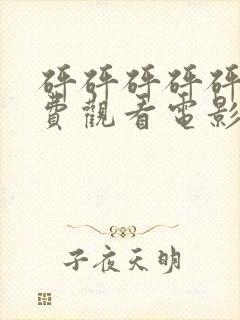 砰砰砰砰砰
費觀看電影
子夜天明